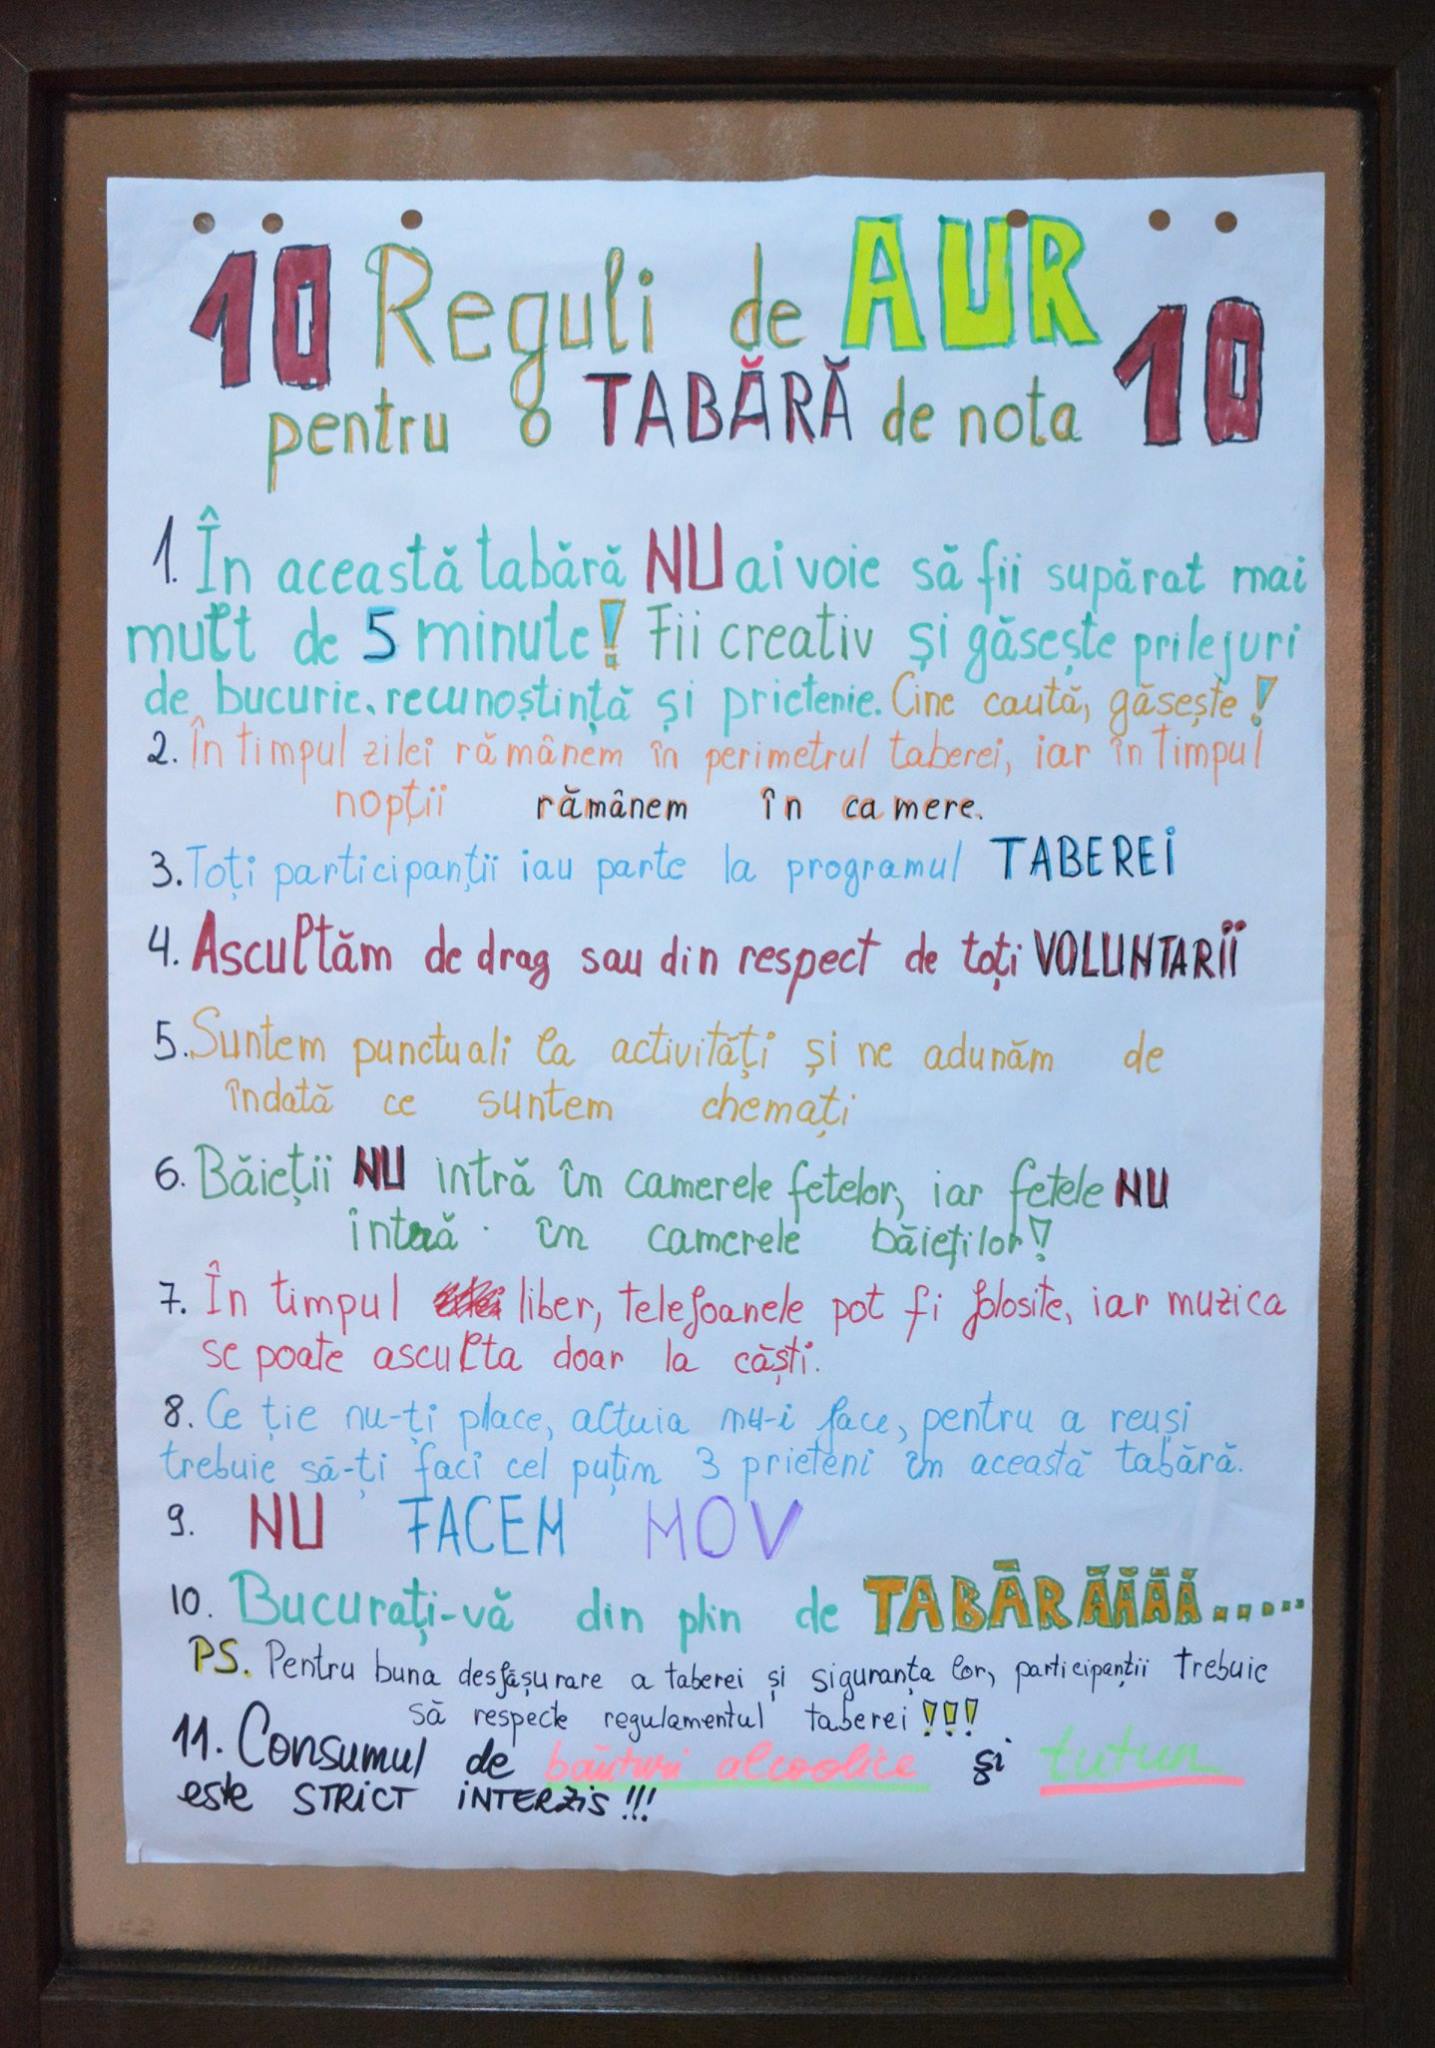 10 Reguli de AUR
pentru o TABĂRĂ de nota 10
1. În această tabără NU ai voie să fii supărat mai
mult de 5 minute! Fii creativ și găsește prilejuri
de bucurie, recunoștință și prietenie. Cine caută, găsește!
2. În timpul zilei rămânem în perimetrul taberei, iar în timpul
nopții rămânem în camere.
3. Toți participanții iau parte la programul TABEREI
4. Ascultăm de drag sau din respect de toți VOLUNTARII
5. Suntem punctuali la activități și ne adunăm de
îndată ce suntem chemați
6. Băieții NU intră în camerele fetelor, iar fetele NU
intră în camerele băieților!
7. În timpul liber, telefoanele pot fi folosite, iar muzica
se poate asculta doar la căști.
8. Ce ție nu-ți place, altuia nu-i face, pentru a reuși
trebuie să-ți faci cel puțin 3 prieteni în această tabără.
9. NU FACEM MOV
10. Bucurați-vă din plin de TABĂRĂĂĂĂ.....
PS. Pentru buna desfășurare a taberei și siguranța lor, participanții trebuie
să respecte regulamentul taberei !!!
11. Consumul de băuturi alcoolice și tutun
este STRICT INTERZIS !!!